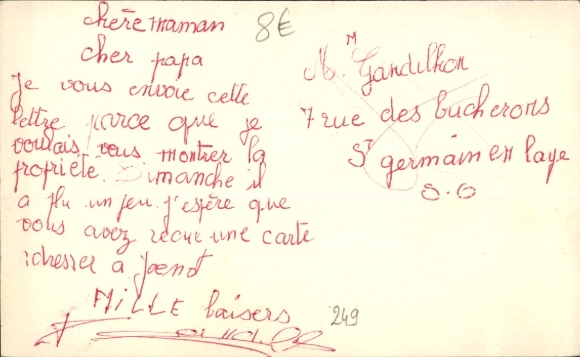 chère maman
8€
cher papa
Je vous envoie cette
lettre parce que je
voulais vous montrer la
propriete. Dimanche il
a plu un jeu. j'espère que
vous avez recue une carte
adresser a
MILLE baisers
249
M M Gandilhon
7 rue des bucherons
St germain en laye
S.O